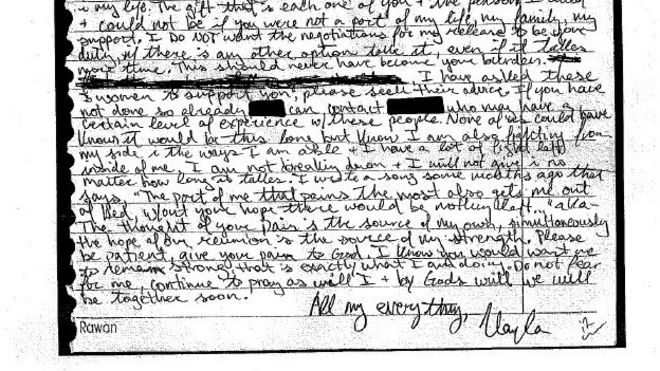 in my life. The gift that is each one of you + the person I
+ could not be if you were not a part of my life, my family, my
support. I DO NOT want the negotiations for my release to be your
duty, if there is any other option take it, even if it takes
more time. This should never have become your burden.
I have asked these
women to support you; please seek their advice. If you have
not done so already can contact who may have a
certain level of experience w/ these people. None of us could have
known it would be this long but know I am also fighting from
my side in the ways I am able + I have a lot of fight left
inside of me. I am not breaking down + I will not give in no
matter how long it takes. I wrote a song some months ago that
says, "The part of me that pains the most also gets me out
of bed, w/out your hope there would be nothing left..." aka-
The thought of your pain is the source of my own, simultaneously
the hope of our reunion is the source of my strength. Please
be patient, give your pain to God. I know you would want me
to remain strong that is exactly what I am doing. Do not fear
for me, continue to pray as will I + by Gods will we will
be together soon.
All my everything,
Kayla
Rawan